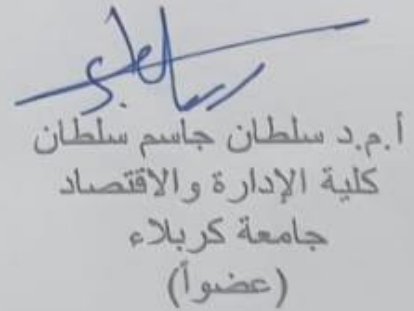 أ.م.د سلطان جاسم سلطان
كلية الإدارة والاقتصاد
جامعة كربلاء
(عضواً)